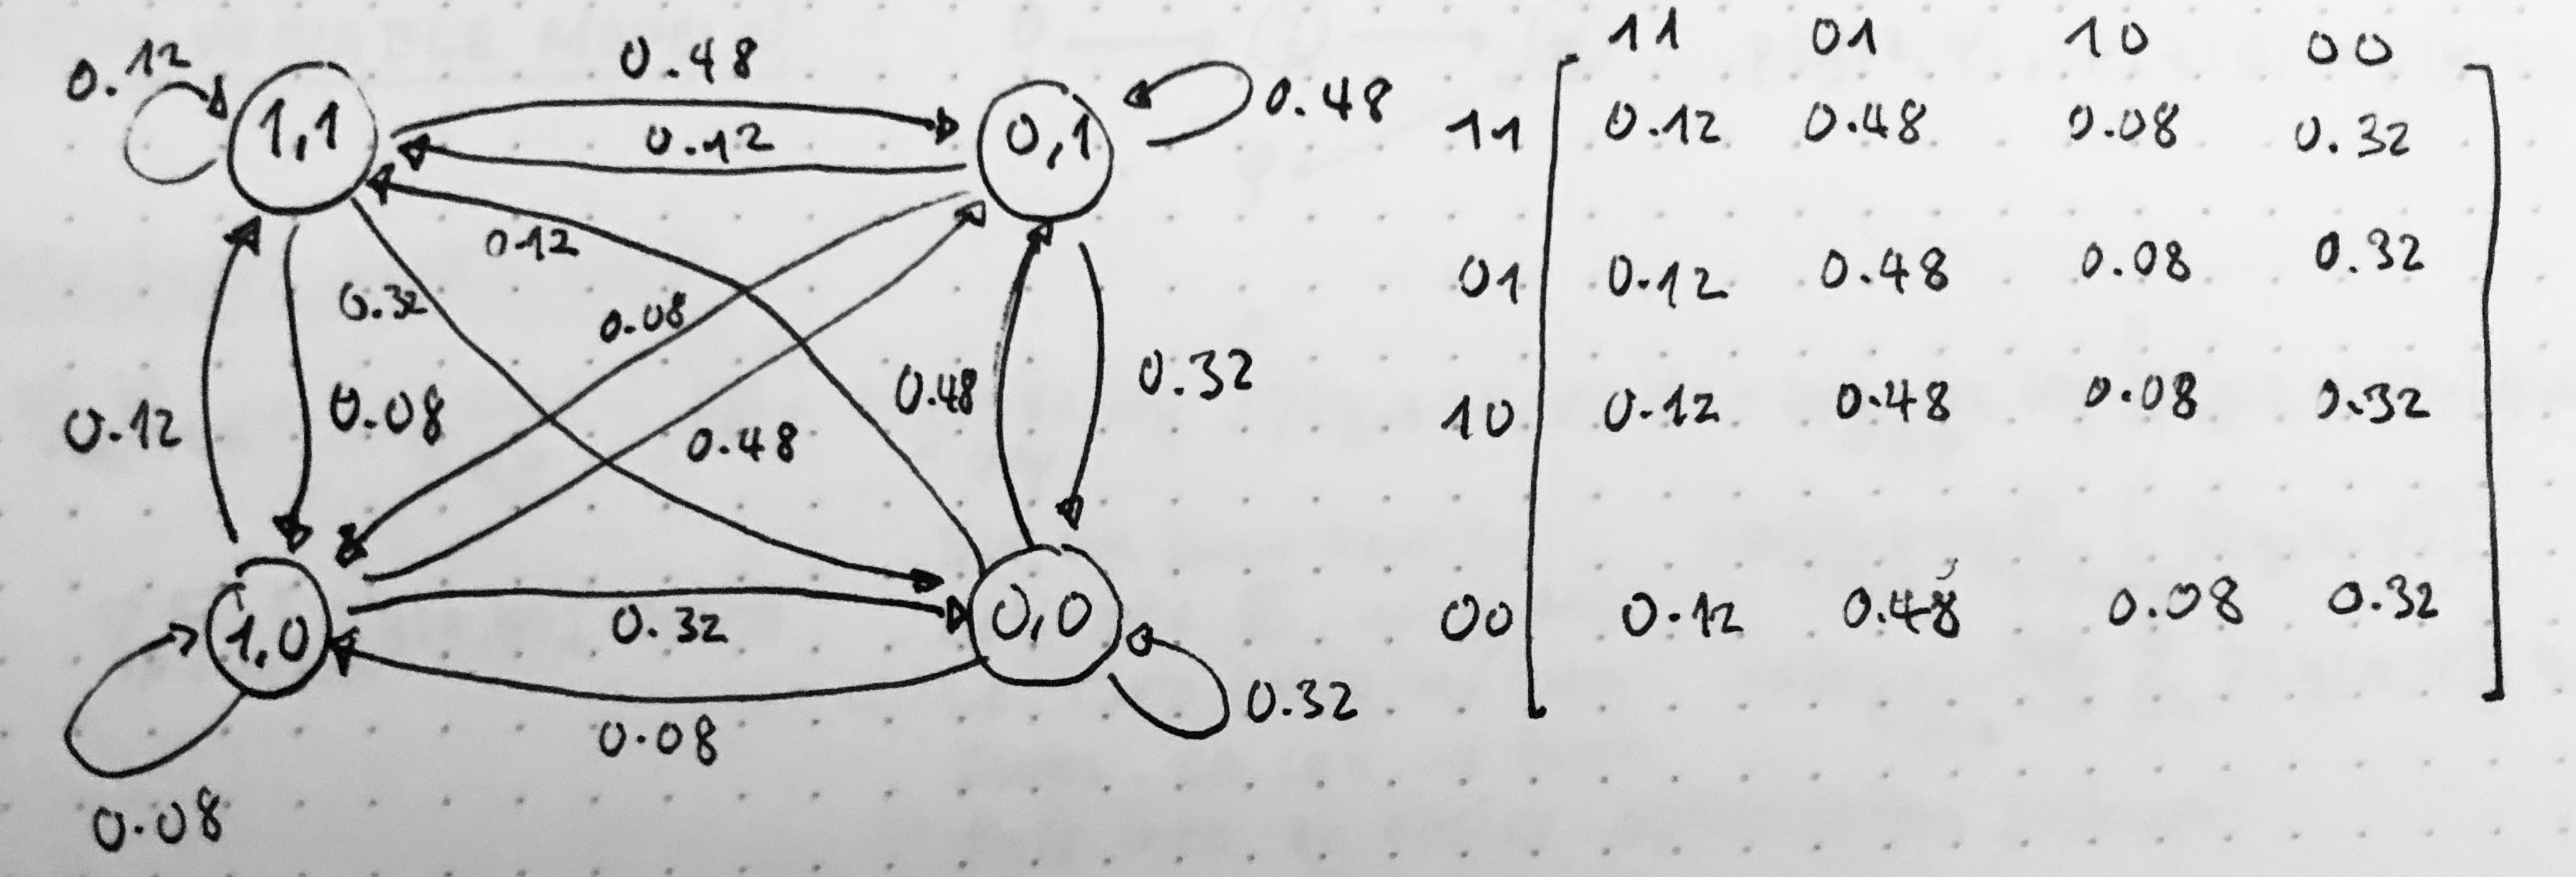 0.12 0.48
1,1 0,1 0.48
0.12
0.12
0.32 0.08
0.12 0.08 0.48 0.48 0.32
1,0 0.32 0,0
0.08 0.32
0.08
11 01 10 00
11 0.12 0.48 0.08 0.32
01 0.12 0.48 0.08 0.32
10 0.12 0.48 0.08 0.32
00 0.12 0.48 0.08 0.32